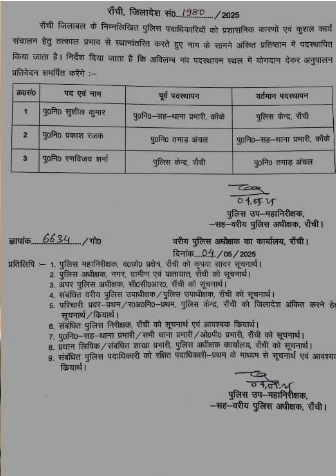 राँची, जिलादेश सं0 1980 /2025
राँची जिलाबल के निम्नलिखित पुलिस पदाधिकारियों को प्रशासनिक कारणों एवं कुशल कार्य
संचालन हेतु तत्काल प्रभाव से स्थानांतरित करते हुए नाम के सामने अंकित प्रतिष्ठान में पदस्थापित
किया जाता है। निर्देश दिया जाता है कि अविलम्ब नव पदस्थापन स्थल में योगदान देकर अनुपालन
प्रतिवेदन समर्पित करेंगे :–
क्र०सं० पद एवं नाम पूर्व पदस्थापन वर्तमान पदस्थापन
1 पु०नि० सुशील कुमार पु०नि०-सह-थाना प्रभारी, कांके पुलिस केन्द्र, राँची
2 पु०नि० प्रकाश रजक पु०नि० तमाड़ अंचल पु०नि०-सह-थाना प्रभारी, कांके
3 पु०नि० रणविजय शर्मा पुलिस केन्द्र, राँची पु०नि० तमाड़ अंचल
पुलिस उप-महानिरीक्षक,
-सह-वरीय पुलिस अधीक्षक, राँची।
ज्ञापांक 6634 /गो०
वरीय पुलिस अधीक्षक का कार्यालय, राँची।
दिनांक 04 /05 /2025
प्रतिलिपि :– 1. पुलिस महानिरीक्षक, द०छो० प्रक्षेत्र, राँची को कृपया सादर सूचनार्थ।
2. पुलिस अधीक्षक, नगर, ग्रामीण एवं यातायात, राँची को सूचनार्थ।
3. अपर पुलिस अधीक्षक, सी०सी०आर०, राँची को सूचनार्थ।
4. संबंधित वरीय पुलिस उपाधीक्षक/पुलिस उपाधीक्षक, राँची को सूचनार्थ।
5. परिचारी प्रवर–प्रथम/रा०अ०नि०–प्रथम, पुलिस केन्द्र, राँची को जिलादेश अंकित करने हेतु
सूचनार्थ/क्रियार्थ।
6. संबंधित पुलिस निरीक्षक, राँची को सूचनार्थ एवं आवश्यक क्रियार्थ।
7. पु०नि०-सह-थाना प्रभारी/सभी थाना प्रभारी/ओ०पी० प्रभारी, राँची को सूचनार्थ।
8. प्रधान लिपिक/संबंधित शाखा प्रभारी, पुलिस अधीक्षक कार्यालय, राँची को सूचनार्थ।
9. संबंधित पुलिस पदाधिकारी को रक्षित पदाधिकारी–प्रथम के माध्यम से सूचनार्थ एवं आवश्यक
क्रियार्थ।
पुलिस उप-महानिरीक्षक,
-सह-वरीय पुलिस अधीक्षक, राँची।